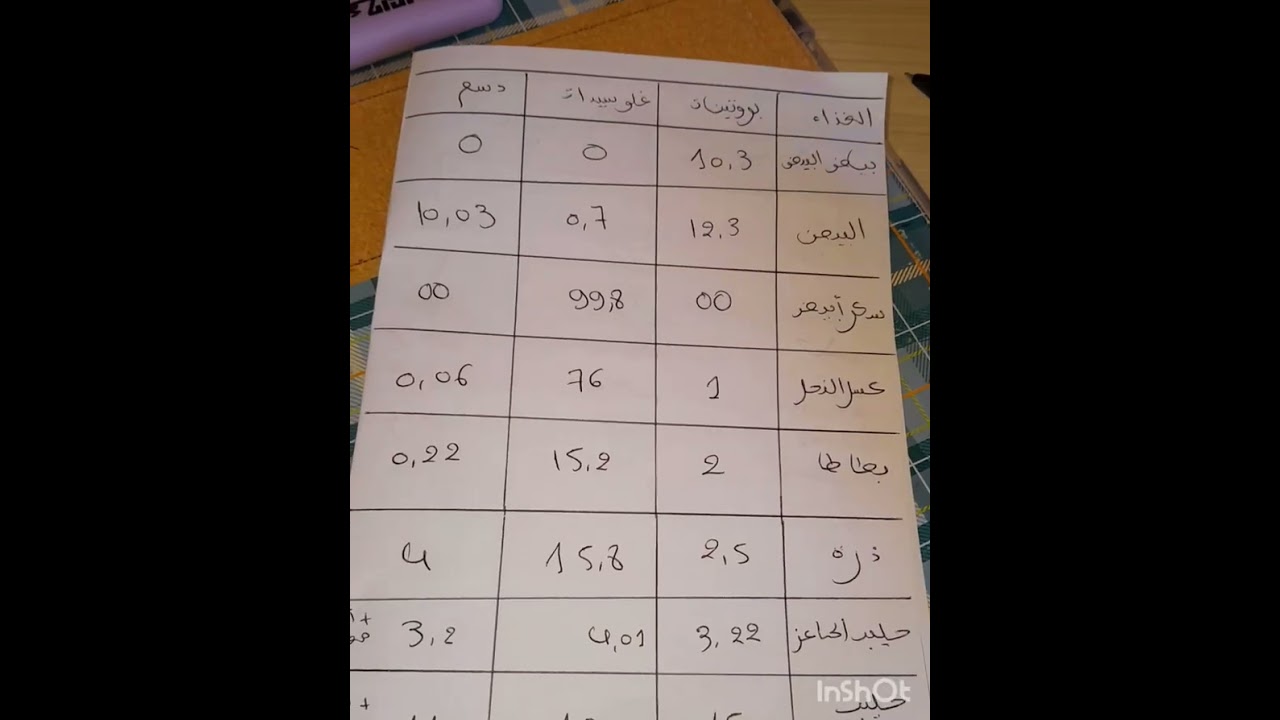 الغذاء بروتينات غلوسيدات دسم
بياض البيض 10,3 0 0
البيض 12,3 0,7 10,03
سكر أبيض 00 99,8 00
عسل النحل 1 76 0,06
بطاطا 2 15,2 0,22
ذرة 2,5 15,8 4
حليب الماعز 3,22 4,01 3,2
حليب
InShOt